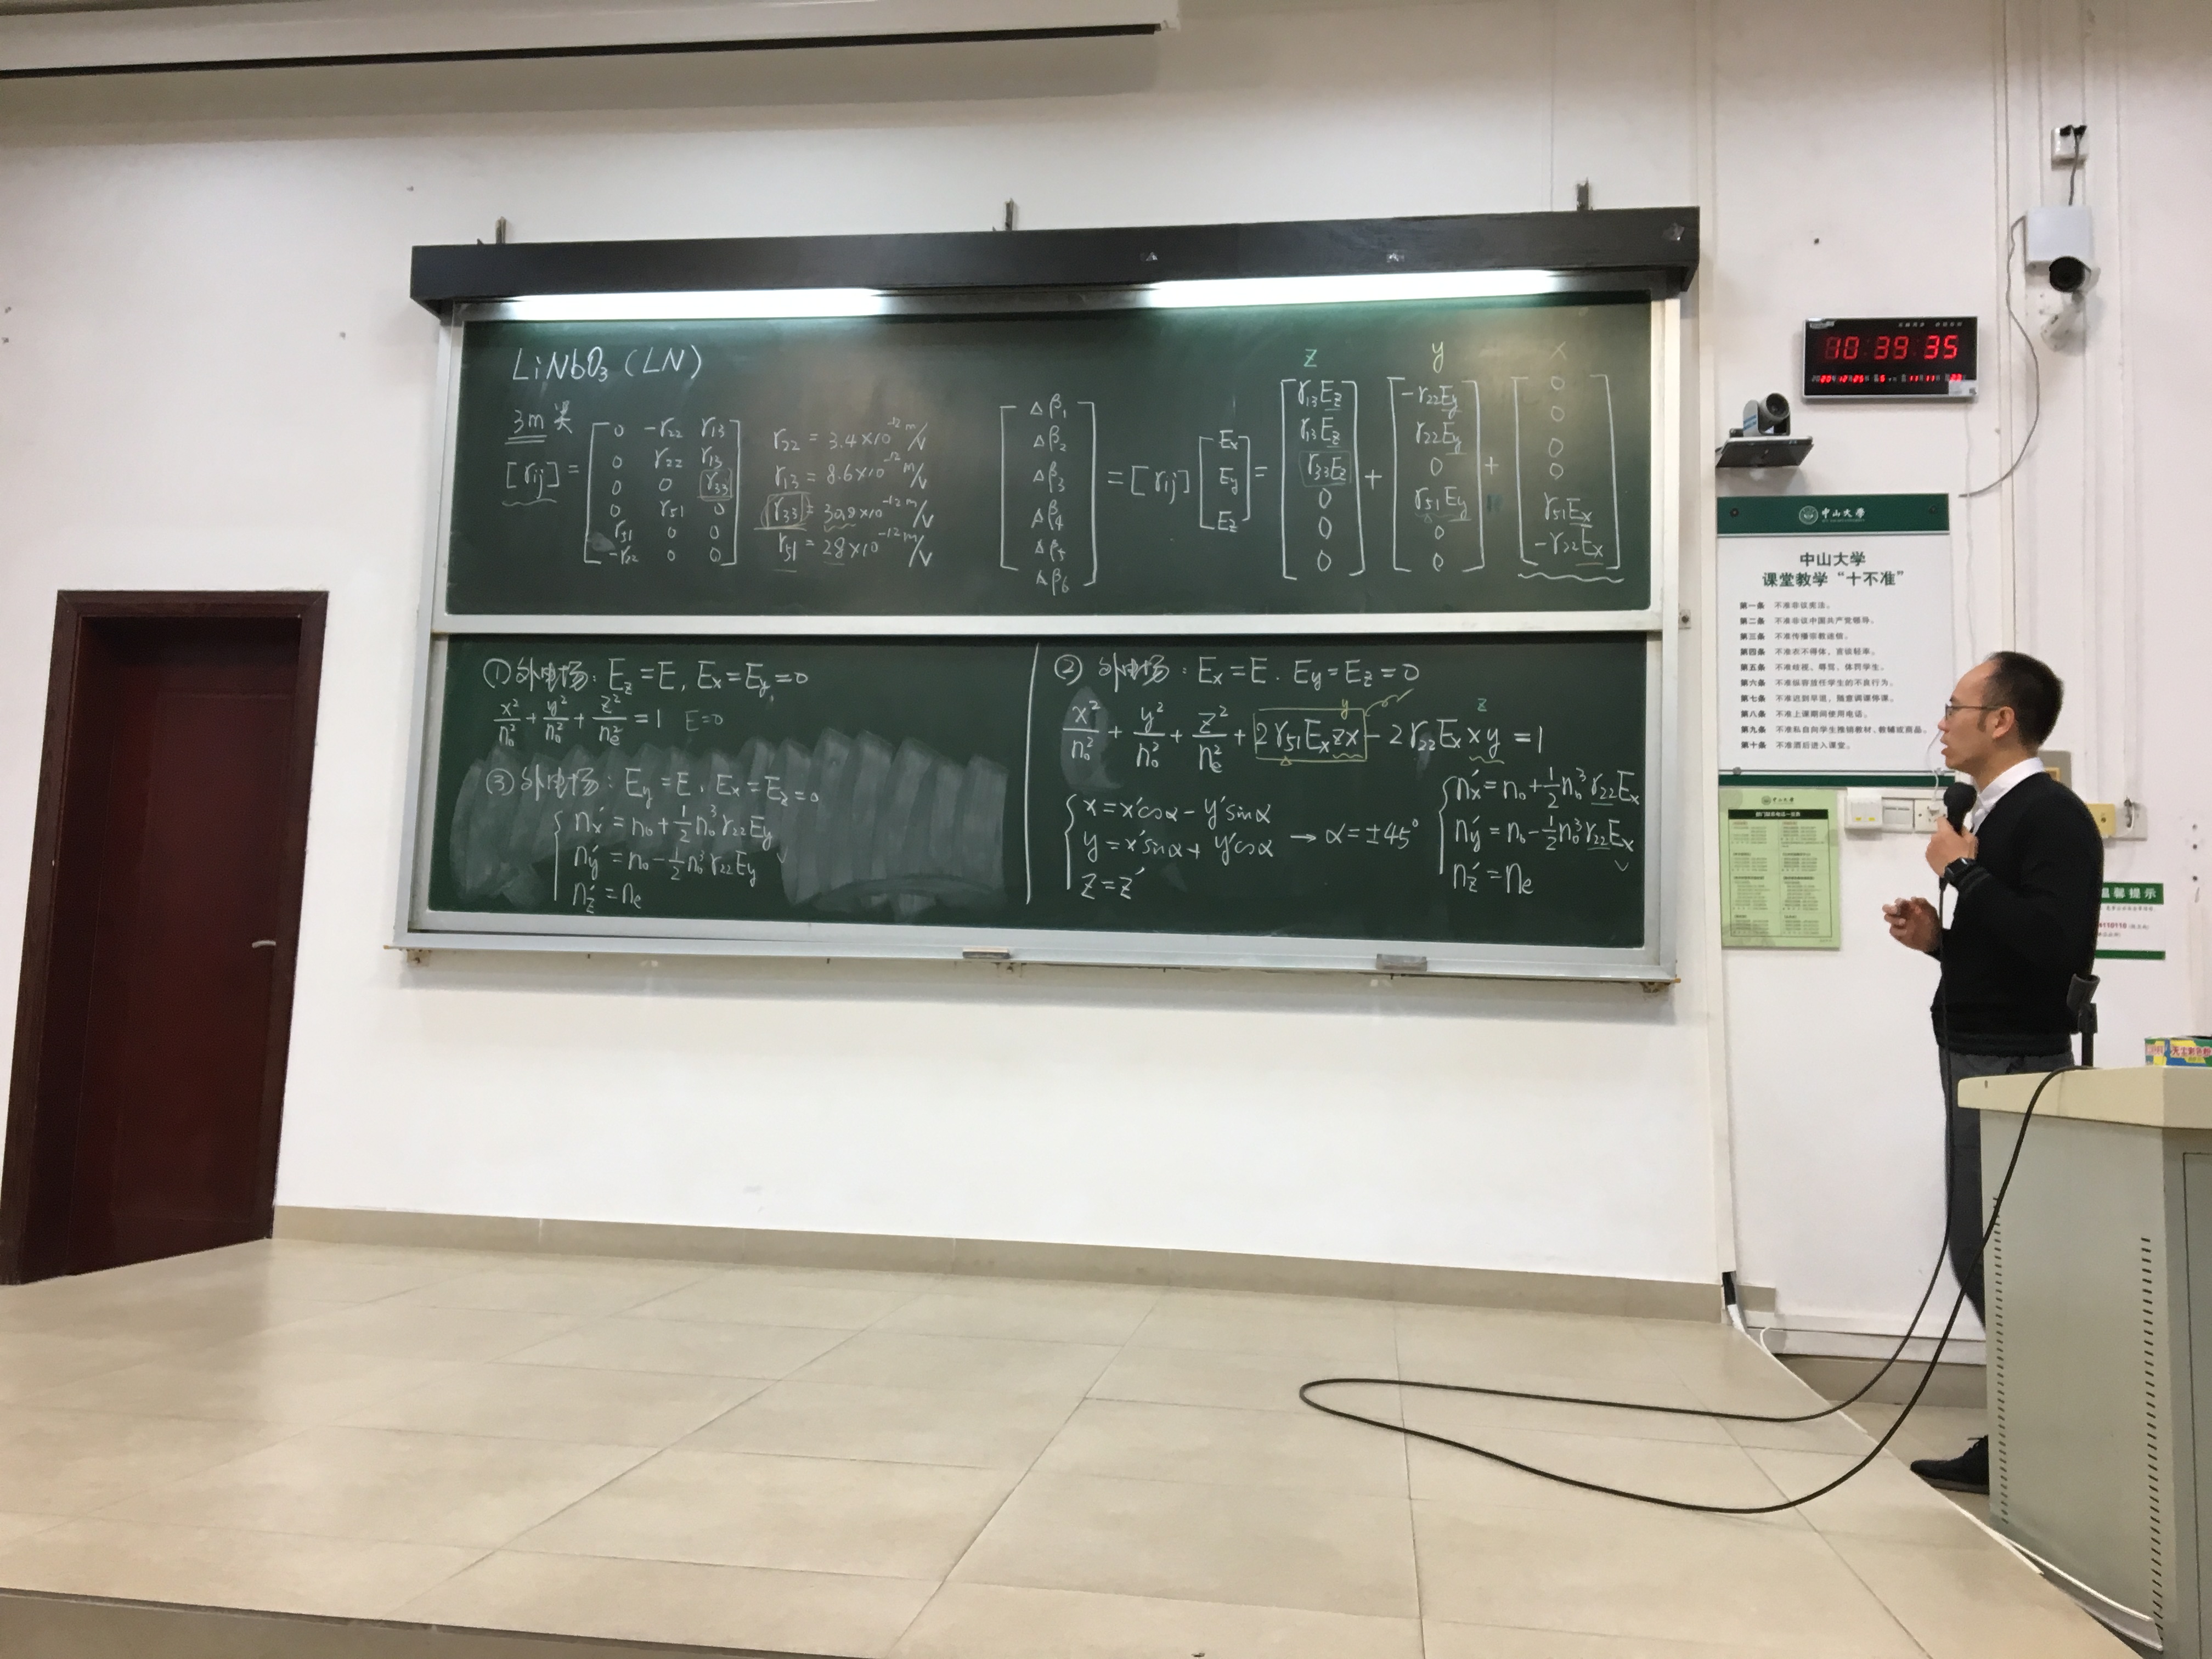 LiNbO₃ (LN)
3m 类
[γij] = [0 -γ22 γ13
0 γ22 γ13
0 0 γ33
0 γ51 0
γ51 0 0
-γ22 0 0]
γ22 = 3.4×10⁻¹² m/V
γ13 = 8.6×10⁻¹² m/V
γ33 = 30.8×10⁻¹² m/V
γ51 = 28×10⁻¹² m/V
[Δβ1
Δβ2
Δβ3
Δβ4
Δβ5
Δβ6]
= [γij] [Ex
Ey
Ez] =
z
[γ13Ez
γ13Ez
γ33Ez
0
0
0]
+
y
[-γ22Ey
γ22Ey
0
γ51Ey
0
0]
+
x
[0
0
0
0
γ51Ex
-γ22Ex]
① 外电场: Ez=E, Ex=Ey=0
x²/n₀² + y²/n₀² + z²/ne² = 1 E=0
③ 外电场: Ey=E, Ex=Ez=0
nx' = n₀+½n₀³γ22Ey
ny' = n₀-½n₀³γ22Ey
nz' = ne
② 外电场: Ex=E. Ey=Ez=0
y z
x²/n₀² + y²/n₀² + z²/ne² + 2γ51Ex zx - 2γ22Ex xy = 1
x=x'cosα-y'sinα
y=x'sinα+y'cosα → α=±45°
z=z'
nx'=n₀+½n₀³γ22Ex
ny'=n₀-½n₀³γ22Ex
nz'=ne
10:39:35
中山大学
中山大学
课堂教学“十不准”
第一条 不准非议宪法。
第二条 不准非议中国共产党领导。
第三条 不准传播宗教迷信。
第四条 不准衣不得体、言谈轻率。
第五条 不准歧视、辱骂、体罚学生。
第六条 不准纵容放任学生的不良行为。
第七条 不准迟到早退，随意调课停课。
第八条 不准上课期间使用电话。
第九条 不准私自向学生推销教材、教辅或商品。
第十条 不准酒后进入课堂。
温馨提示